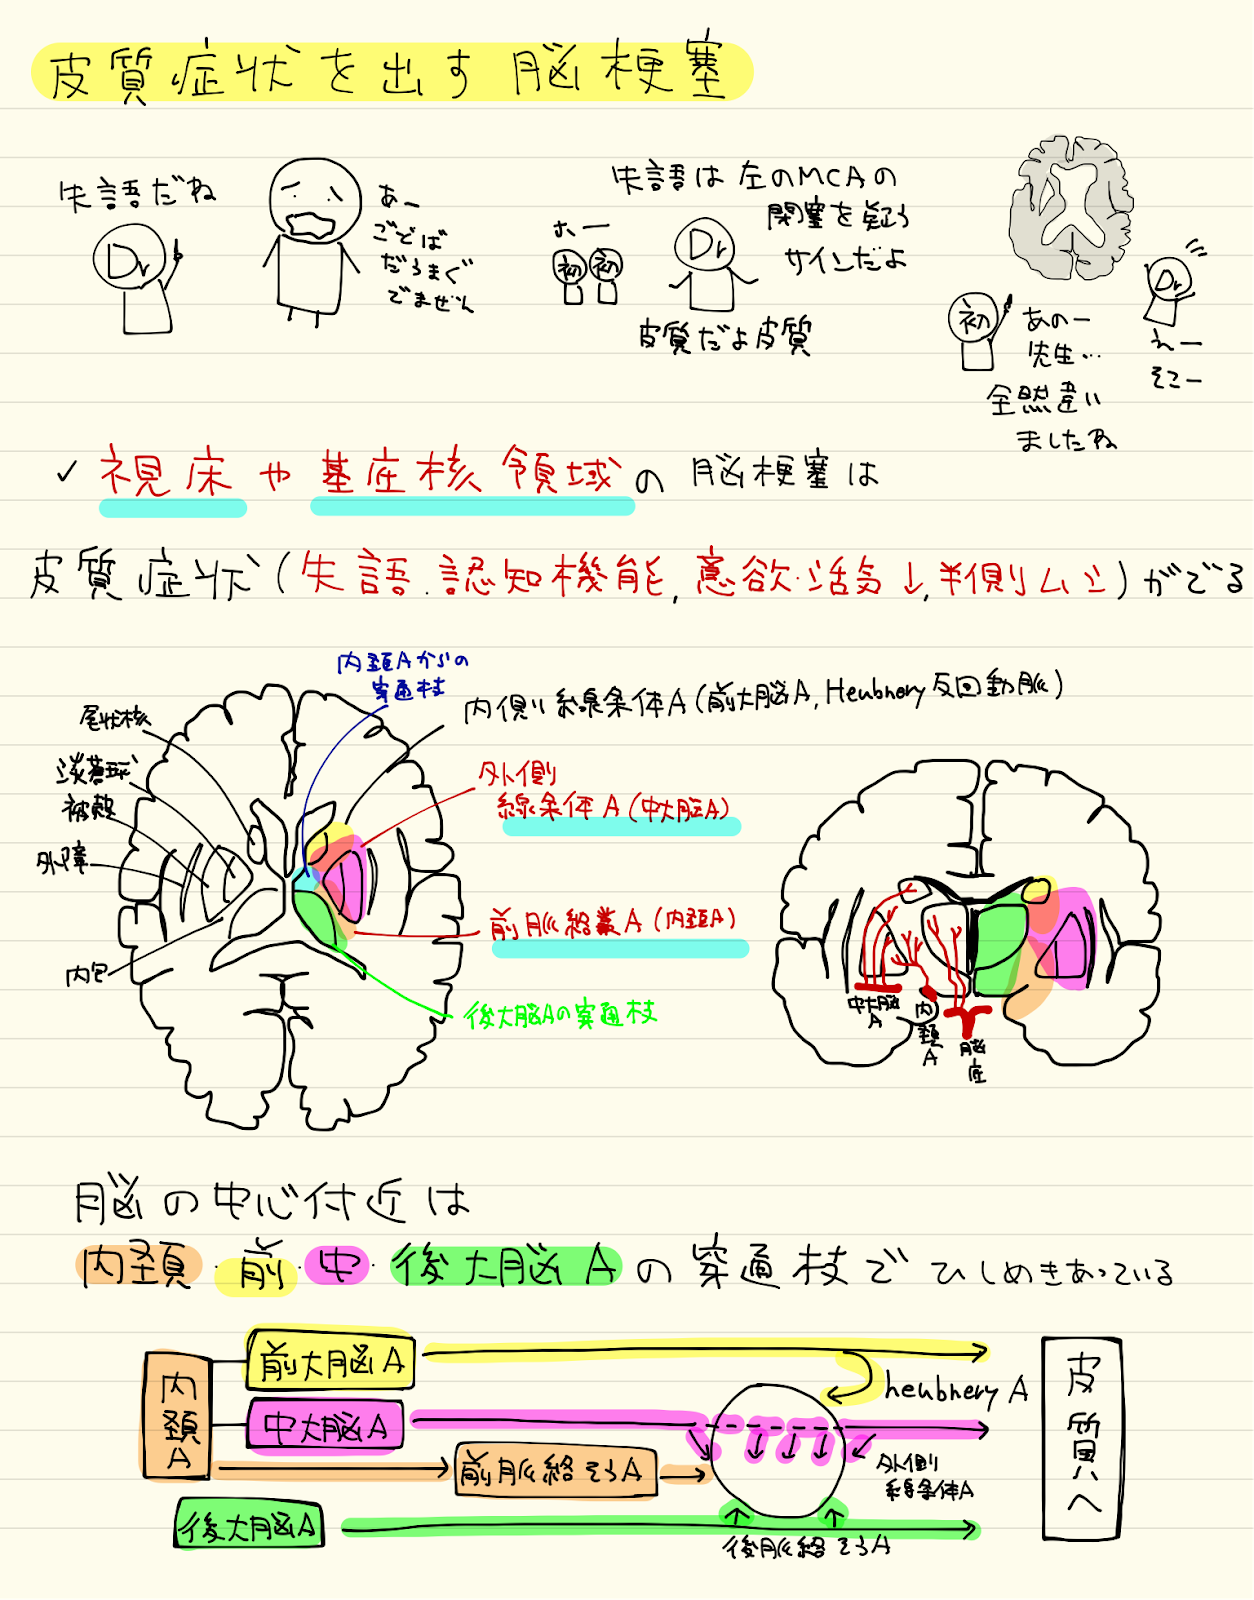 皮質症状を出す脳梗塞
失語だね
Dr
あー
ごどば
だろまぐ
でまぜん
ホー
初 初
失語は左のMCAの
閉塞を疑う
サインだよ
Dr
皮質だよ皮質
初
あのー
先生…
全然違い
ましたね
Dr
えー
そこー
✓ 視床や基底核領域の脳梗塞は
皮質症状(失語.認知機能,意欲・活気↓,半側ムシ)がでる
内頚Aからの
穿通枝
内側線条体A(前大脳A,Heubnery反回動脈)
外側
線条体A(中大脳A)
前脈絡叢A(内頚A)
後大脳Aの穿通枝
尾状核
淡蒼球
被殻
外障
内包
中大脳
A
内頚A
脳底
脳の中心付近は
内頚・前・中・後大脳Aの穿通枝でひしめきあっている
内頚A
前大脳A
heubnery A
中大脳A
外側
線条体A
前脈絡そうA
後大脳A
後脈絡そうA
皮質へ